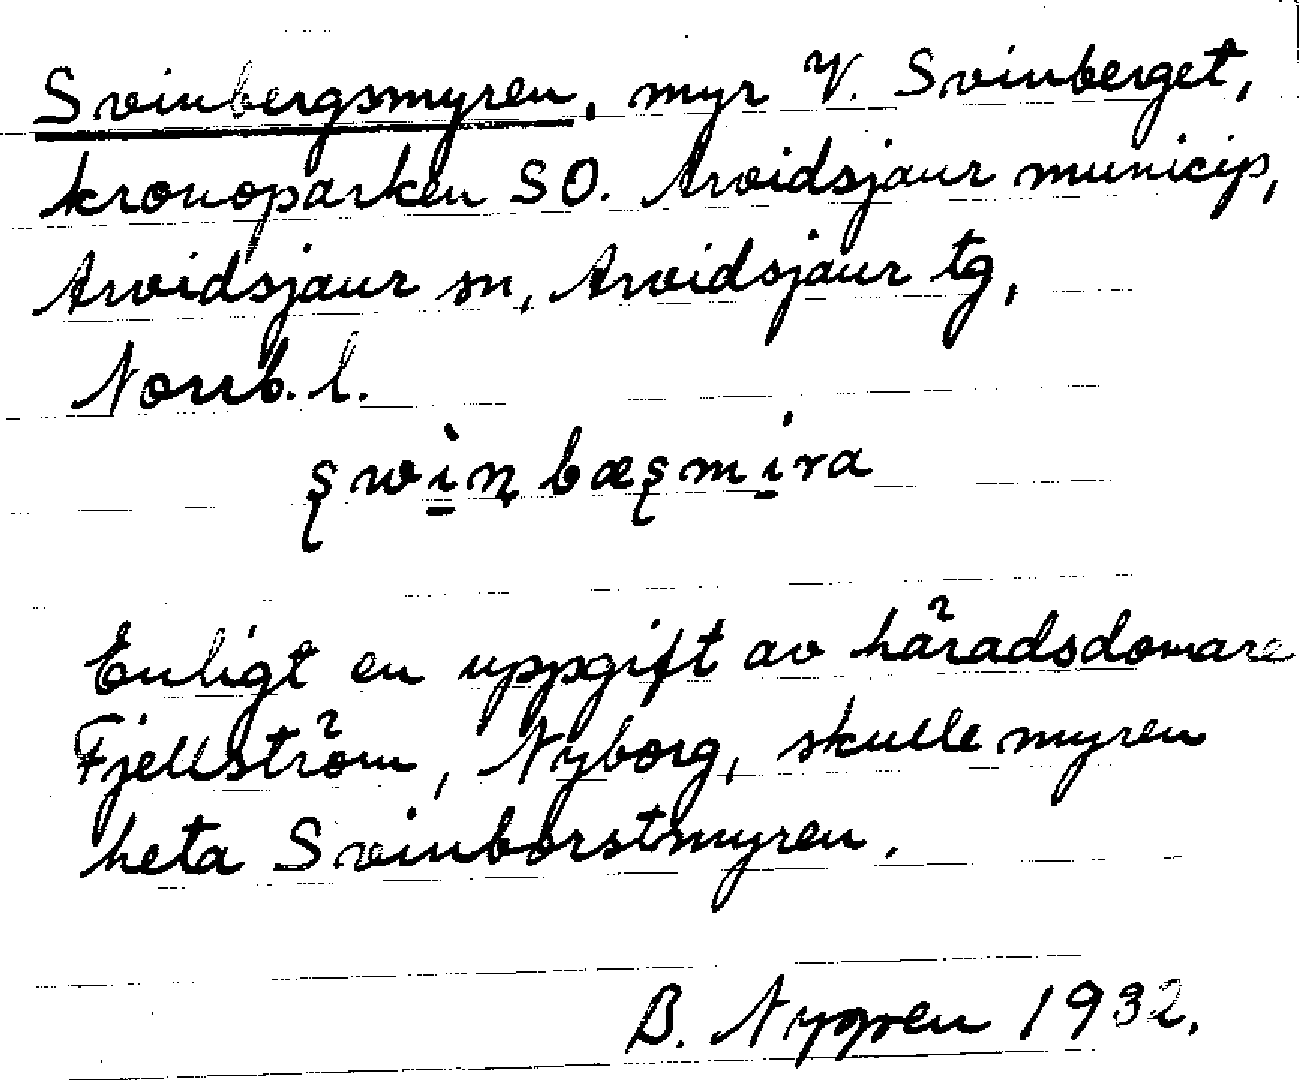 Svinbergsmyren, myr V. Svinberget,
kronoparken SO. Arvidsjaur municip,
Arvidsjaur sn, Arvidsjaur tg,
Norrb. l.
Enligt en uppgift av häradsdomare
Fjellström, Nyborg, skulle myren
heta Svinborstmyren.
B. Nygren 1932.